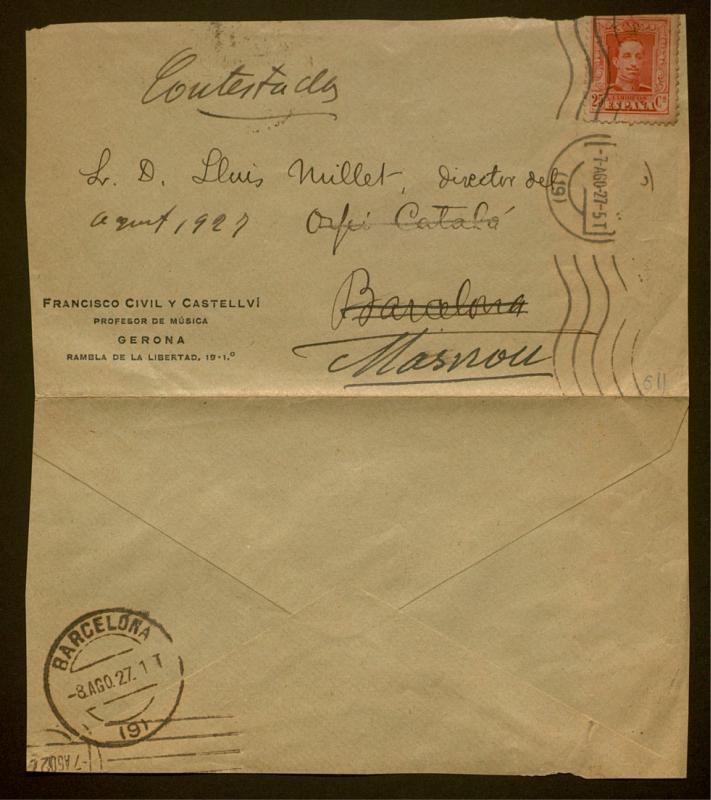 Contestada
25 Cs
ESPAÑA
Sr. D. Lluis Millet, director del
agost 1927 Orfeó Català
-7.AGO.27-5T
(6)
Barcelona
Masnou
FRANCISCO CIVIL Y CASTELLVÍ
PROFESOR DE MÚSICA
GERONA
RAMBLA DE LA LIBERTAD, 19-1.º
611
BARCELONA
-8.AGO.27.1 T
(9)
-7 AGO